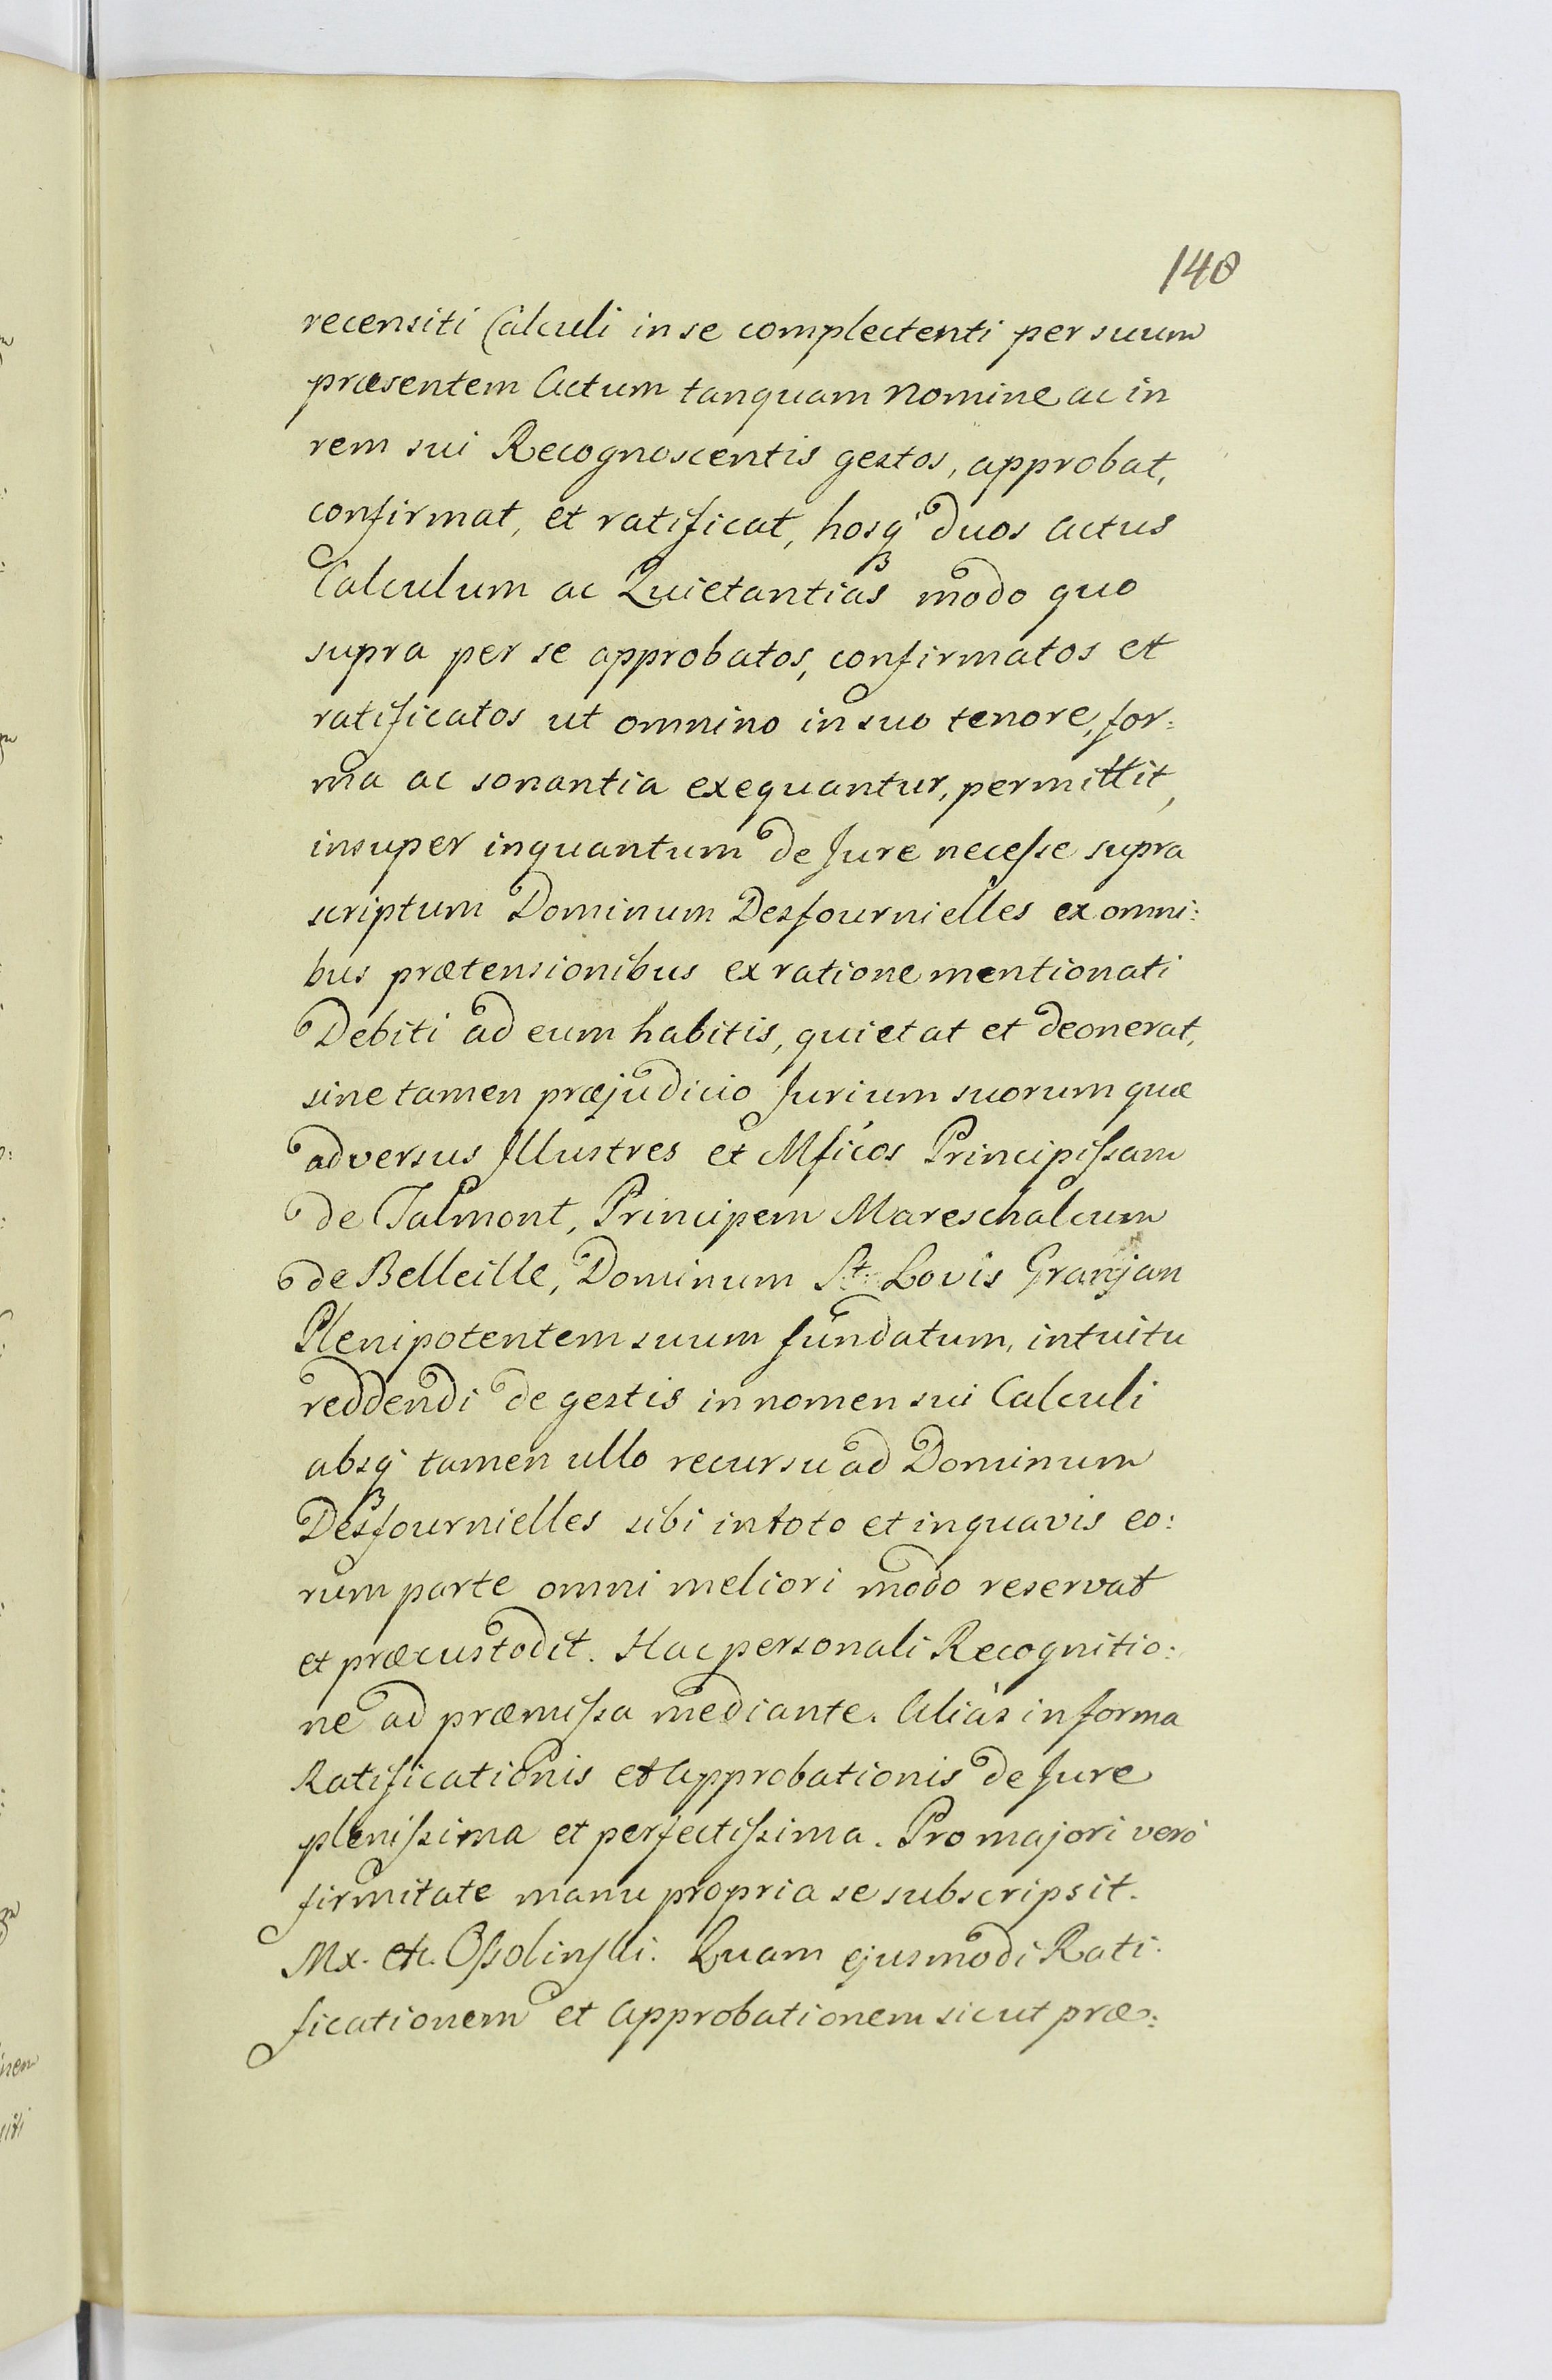 148
recensiti Calculi in se complectenti per suum
præsentem Actum tanquam nomine ac in
rem sui Recognoscentis gestos, approbat,
confirmat, et ratificat, hosq́ duos Actus
Calculum ac Quietantias modo quo
supra per se approbatos, confirmatos et
ratificatos ut omnino in suo tenore, for:
ma ac sonantia exequantur, permittit,
insuper inquantum de Jure necesse supra
scriptum Dominum Desfournielles ex omni:
bus prætensionibus ex ratione mentionati
Debiti ad eum habitis, quietat et deonerat,
sine tamen præjudicio Jurium suorum quæ
adversus Illustres et Mficos Principissam
de Talmont, Principem Mareschalcum
de Belleille, Dominum St. Lovis Granjan
Plenipotentem suum fundatum, intuitu
reddendi de gestis in nomen sui Calculi
absq́ tamen ullo recursu ad Dominum
Desfournielles sibi in toto et in quavis eo:
rum parte omni meliori modo reservat
et præcustodit. Hac personali Recognitio:
ne ad præmissa mediante. Aliàs in forma
Ratificationis et Approbationis de Jure
plenissima et perfectissima. Pro majori verò
firmitate manu propria se subscripsit.
Mx. etc. Ossolinski. Quam ejusmodi Rati:
ficationem et Approbationem sicut præ: